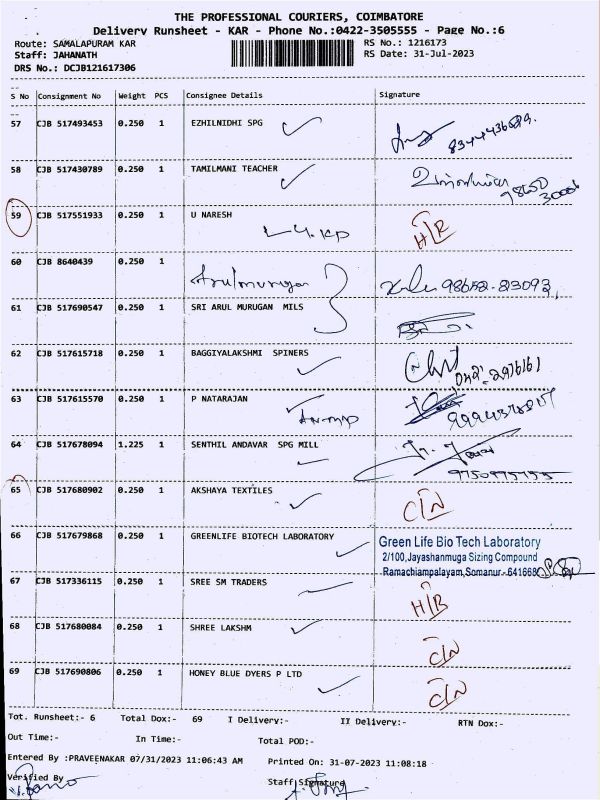 THE PROFESSIONAL COURIERS, COIMBATORE
Delivery Runsheet - KAR - Phone No.:0422-3505555 - Page No.:6
Route: SAMALAPURAM KAR RS No.: 1216173
Staff: JAHANATH RS Date: 31-Jul-2023
DRS No.: DCJB121617306
S No Consignment No Weight PCS Consignee Details Signature
57 CJB 517493453 0.250 1 EZHILNIDHI SPG
58 CJB 517430789 0.250 1 TAMILMANI TEACHER
59 CJB 517551933 0.250 1 U NARESH
60 CJB 8640439 0.250 1 Arulmurugan 98652-23093
61 CJB 517690547 0.250 1 SRI ARUL MURUGAN MILS
62 CJB 517615718 0.250 1 BAGGIYALAKSHMI SPINERS
63 CJB 517615570 0.250 1 P NATARAJAN
64 CJB 517678094 1.225 1 SENTHIL ANDAVAR SPG MILL
65 CJB 517680902 0.250 1 AKSHAYA TEXTILES
66 CJB 517679868 0.250 1 GREENLIFE BIOTECH LABORATORY Green Life Bio Tech Laboratory
2/100,Jayashanmuga Sizing Compound
Ramachiampalayam,Somanur-641668
67 CJB 517336115 0.250 1 SREE SM TRADERS
68 CJB 517680084 0.250 1 SHREE LAKSHM
69 CJB 517690806 0.250 1 HONEY BLUE DYERS P LTD
Tot. Runsheet:- 6 Total Dox:- 69 I Delivery:- II Delivery:- RTN Dox:-
Out Time:- In Time:- Total POD:-
Entered By :PRAVEENAKAR 07/31/2023 11:06:43 AM Printed On: 31-07-2023 11:08:18
Verified By Staff Signature